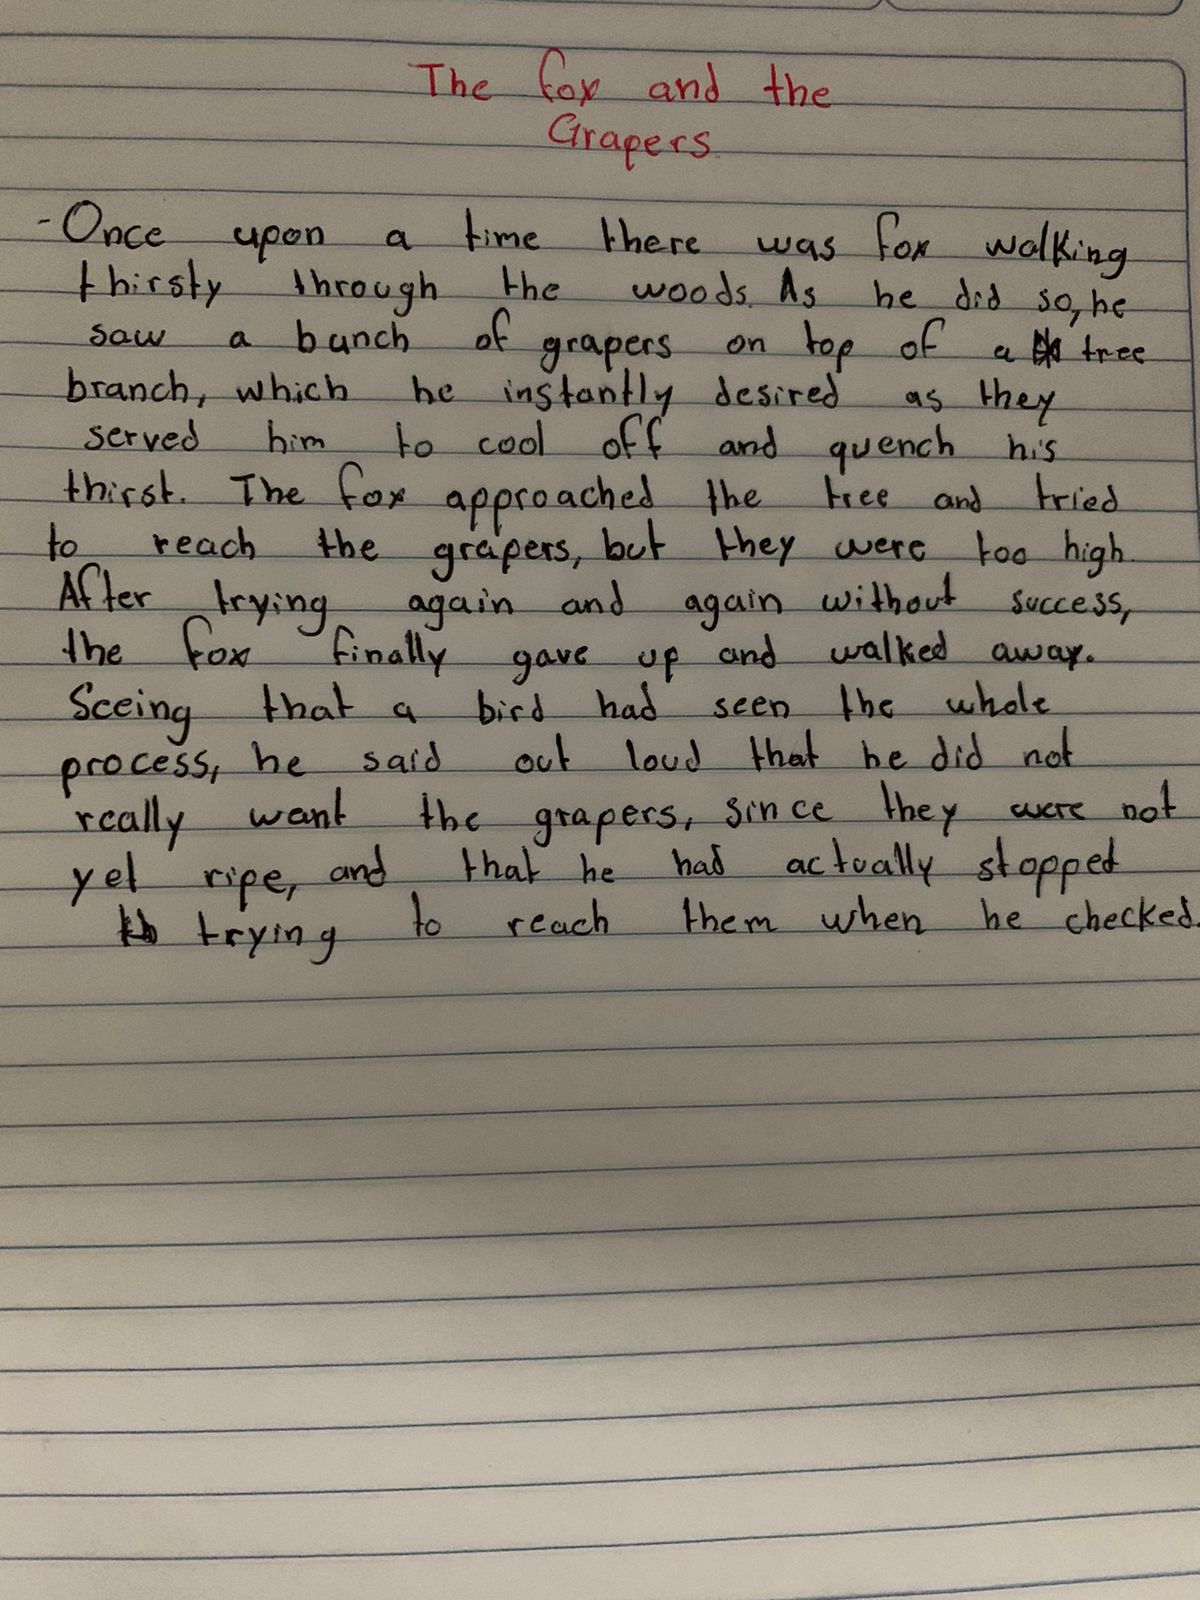 The fox and the
Grapers.
- Once upon a time there was fox walking
thirsty through the woods. As he did so, he
saw a bunch of grapers on top of a tree
branch, which he instantly desired as they
served him to cool off and quench his
thirst. The fox approached the tree and tried
to reach the grapers, but they were too high.
After trying again and again without success,
the fox finally gave up and walked away.
Seeing that a bird had seen the whole
process, he said out loud that he did not
really want the grapers, since they were not
yet ripe, and that he had actually stopped
trying to reach them when he checked.